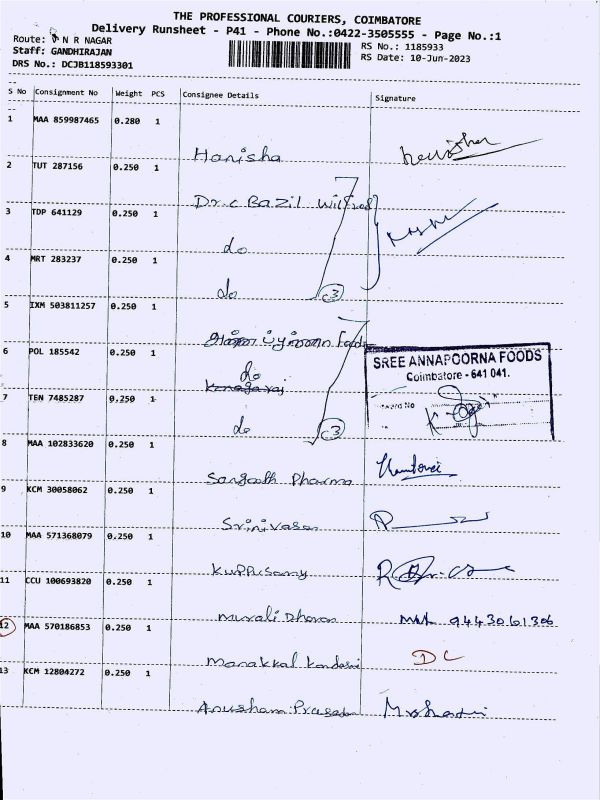 THE PROFESSIONAL COURIERS, COIMBATORE
Delivery Runsheet - P41 - Phone No.:0422-3505555 - Page No.:1
Route: N R NAGAR
RS No.: 1185933
Staff: GANDHIRAJAN
RS Date: 10-Jun-2023
DRS No.: DCJB118593301
S No Consignment No Weight PCS Consignee Details Signature
1 MAA 859987465 0.280 1
Hanisha
2 TUT 287156 0.250 1
Dr. C Bazil Wilfred
3 TDP 641129 0.250 1
do
4 MRT 283237 0.250 1
do 3
5 IXM 503811257 0.250 1
Foods
6 POL 185542 0.250 1
do
SREE ANNAPOORNA FOODS
Coimbatore - 641 041.
7 TEN 7485287 0.250 1
do 3
8 MAA 102833620 0.250 1
Pharma
9 KCM 30058062 0.250 1
Srinivasan
10 MAA 571368079 0.250 1
Kuppusamy
11 CCU 100693820 0.250 1
Murali Dharan 9443061306
12 MAA 570186853 0.250 1
Manakkal DC
13 KCM 12804272 0.250 1